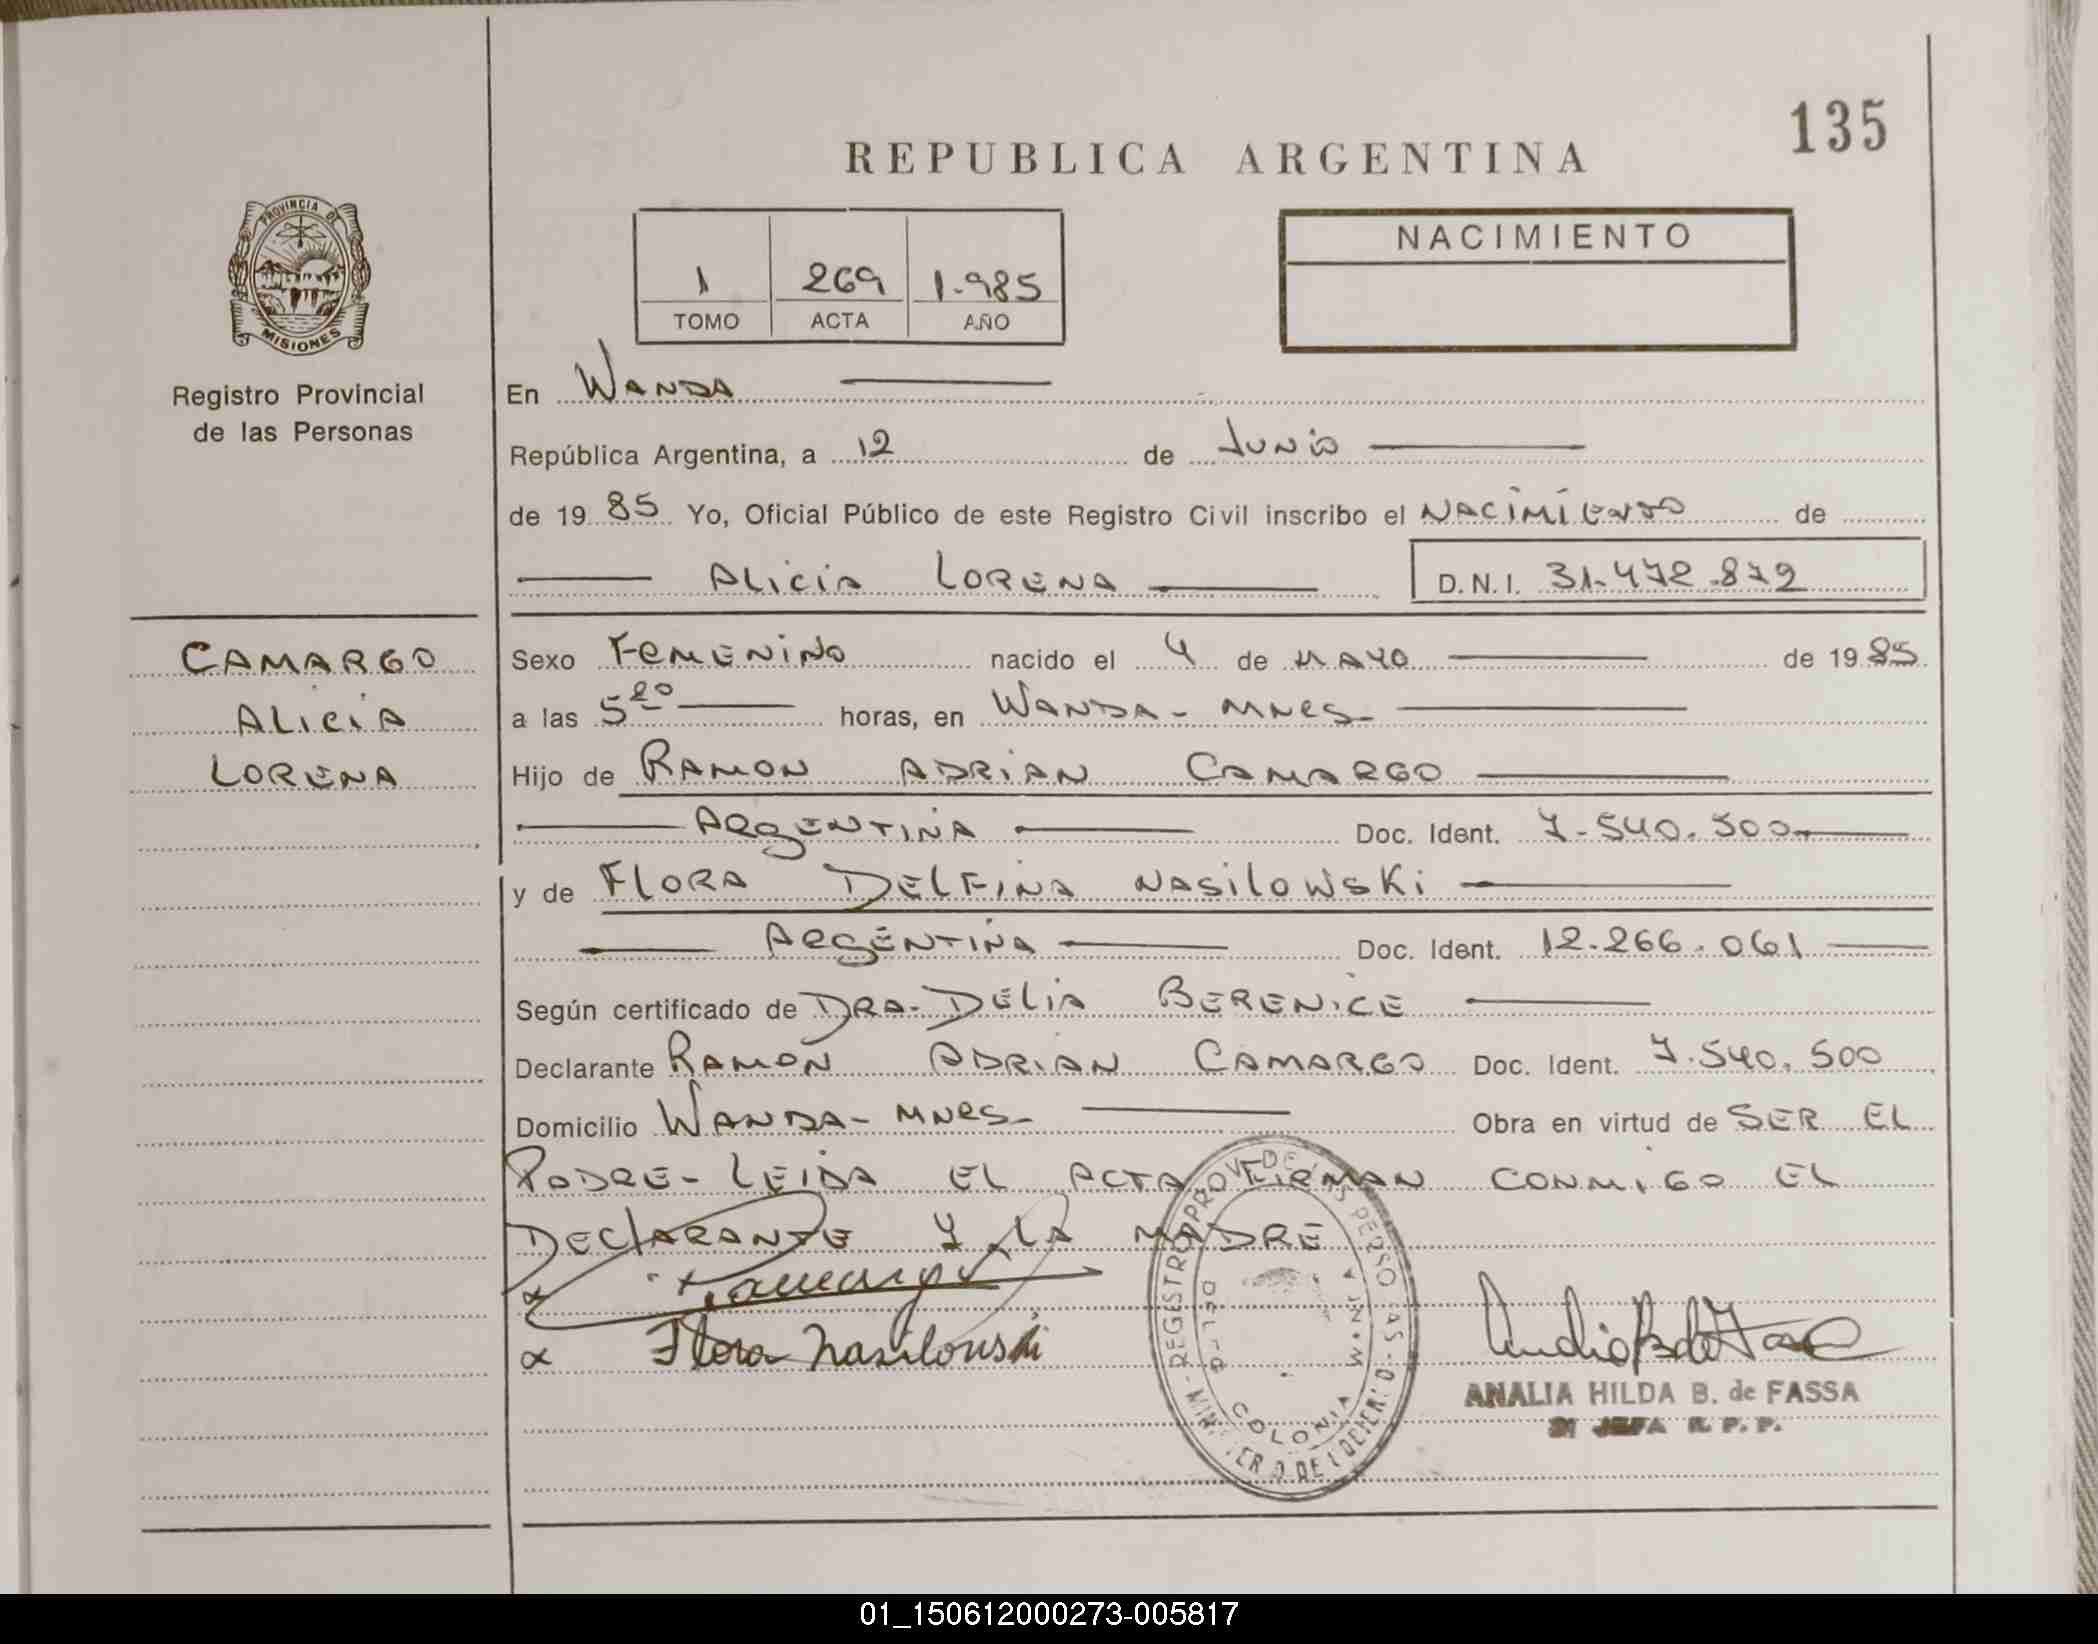 135
REPUBLICA ARGENTINA
PROVINCIA DE
MISIONES
Registro Provincial
de las Personas
1 269 1.985
TOMO ACTA AÑO
NACIMIENTO
En WANDA
República Argentina, a 12 de JUNIO
de 1985 Yo, Oficial Público de este Registro Civil inscribo el NACIMIENTO de
ALICIA LORENA D.N.I. 31.472.872
CAMARGO
ALICIA
LORENA
Sexo FEMENINO nacido el 4 de MAYO de 1985
a las 5 20 horas, en WANDA - MNES -
Hijo de RAMON ADRIAN CAMARGO
ARGENTINA Doc. Ident. 7.540.500
y de FLORA DELFINA NASILOWSKI
ARGENTINA Doc. Ident. 12.266.061
Según certificado de DRA. DELIA BERENICE
Declarante RAMON ADRIAN CAMARGO Doc. Ident. 7.540.500
Domicilio WANDA - MNES - Obra en virtud de SER EL
PADRE - LEIDA EL ACTA FIRMAN CONMIGO EL
DECLARANTE Y LA MADRE
Flora Nasilowski
ANALIA HILDA B. de FASSA
JEFA R. P. P.
COLONIA WANDA
01_150612000273-005817